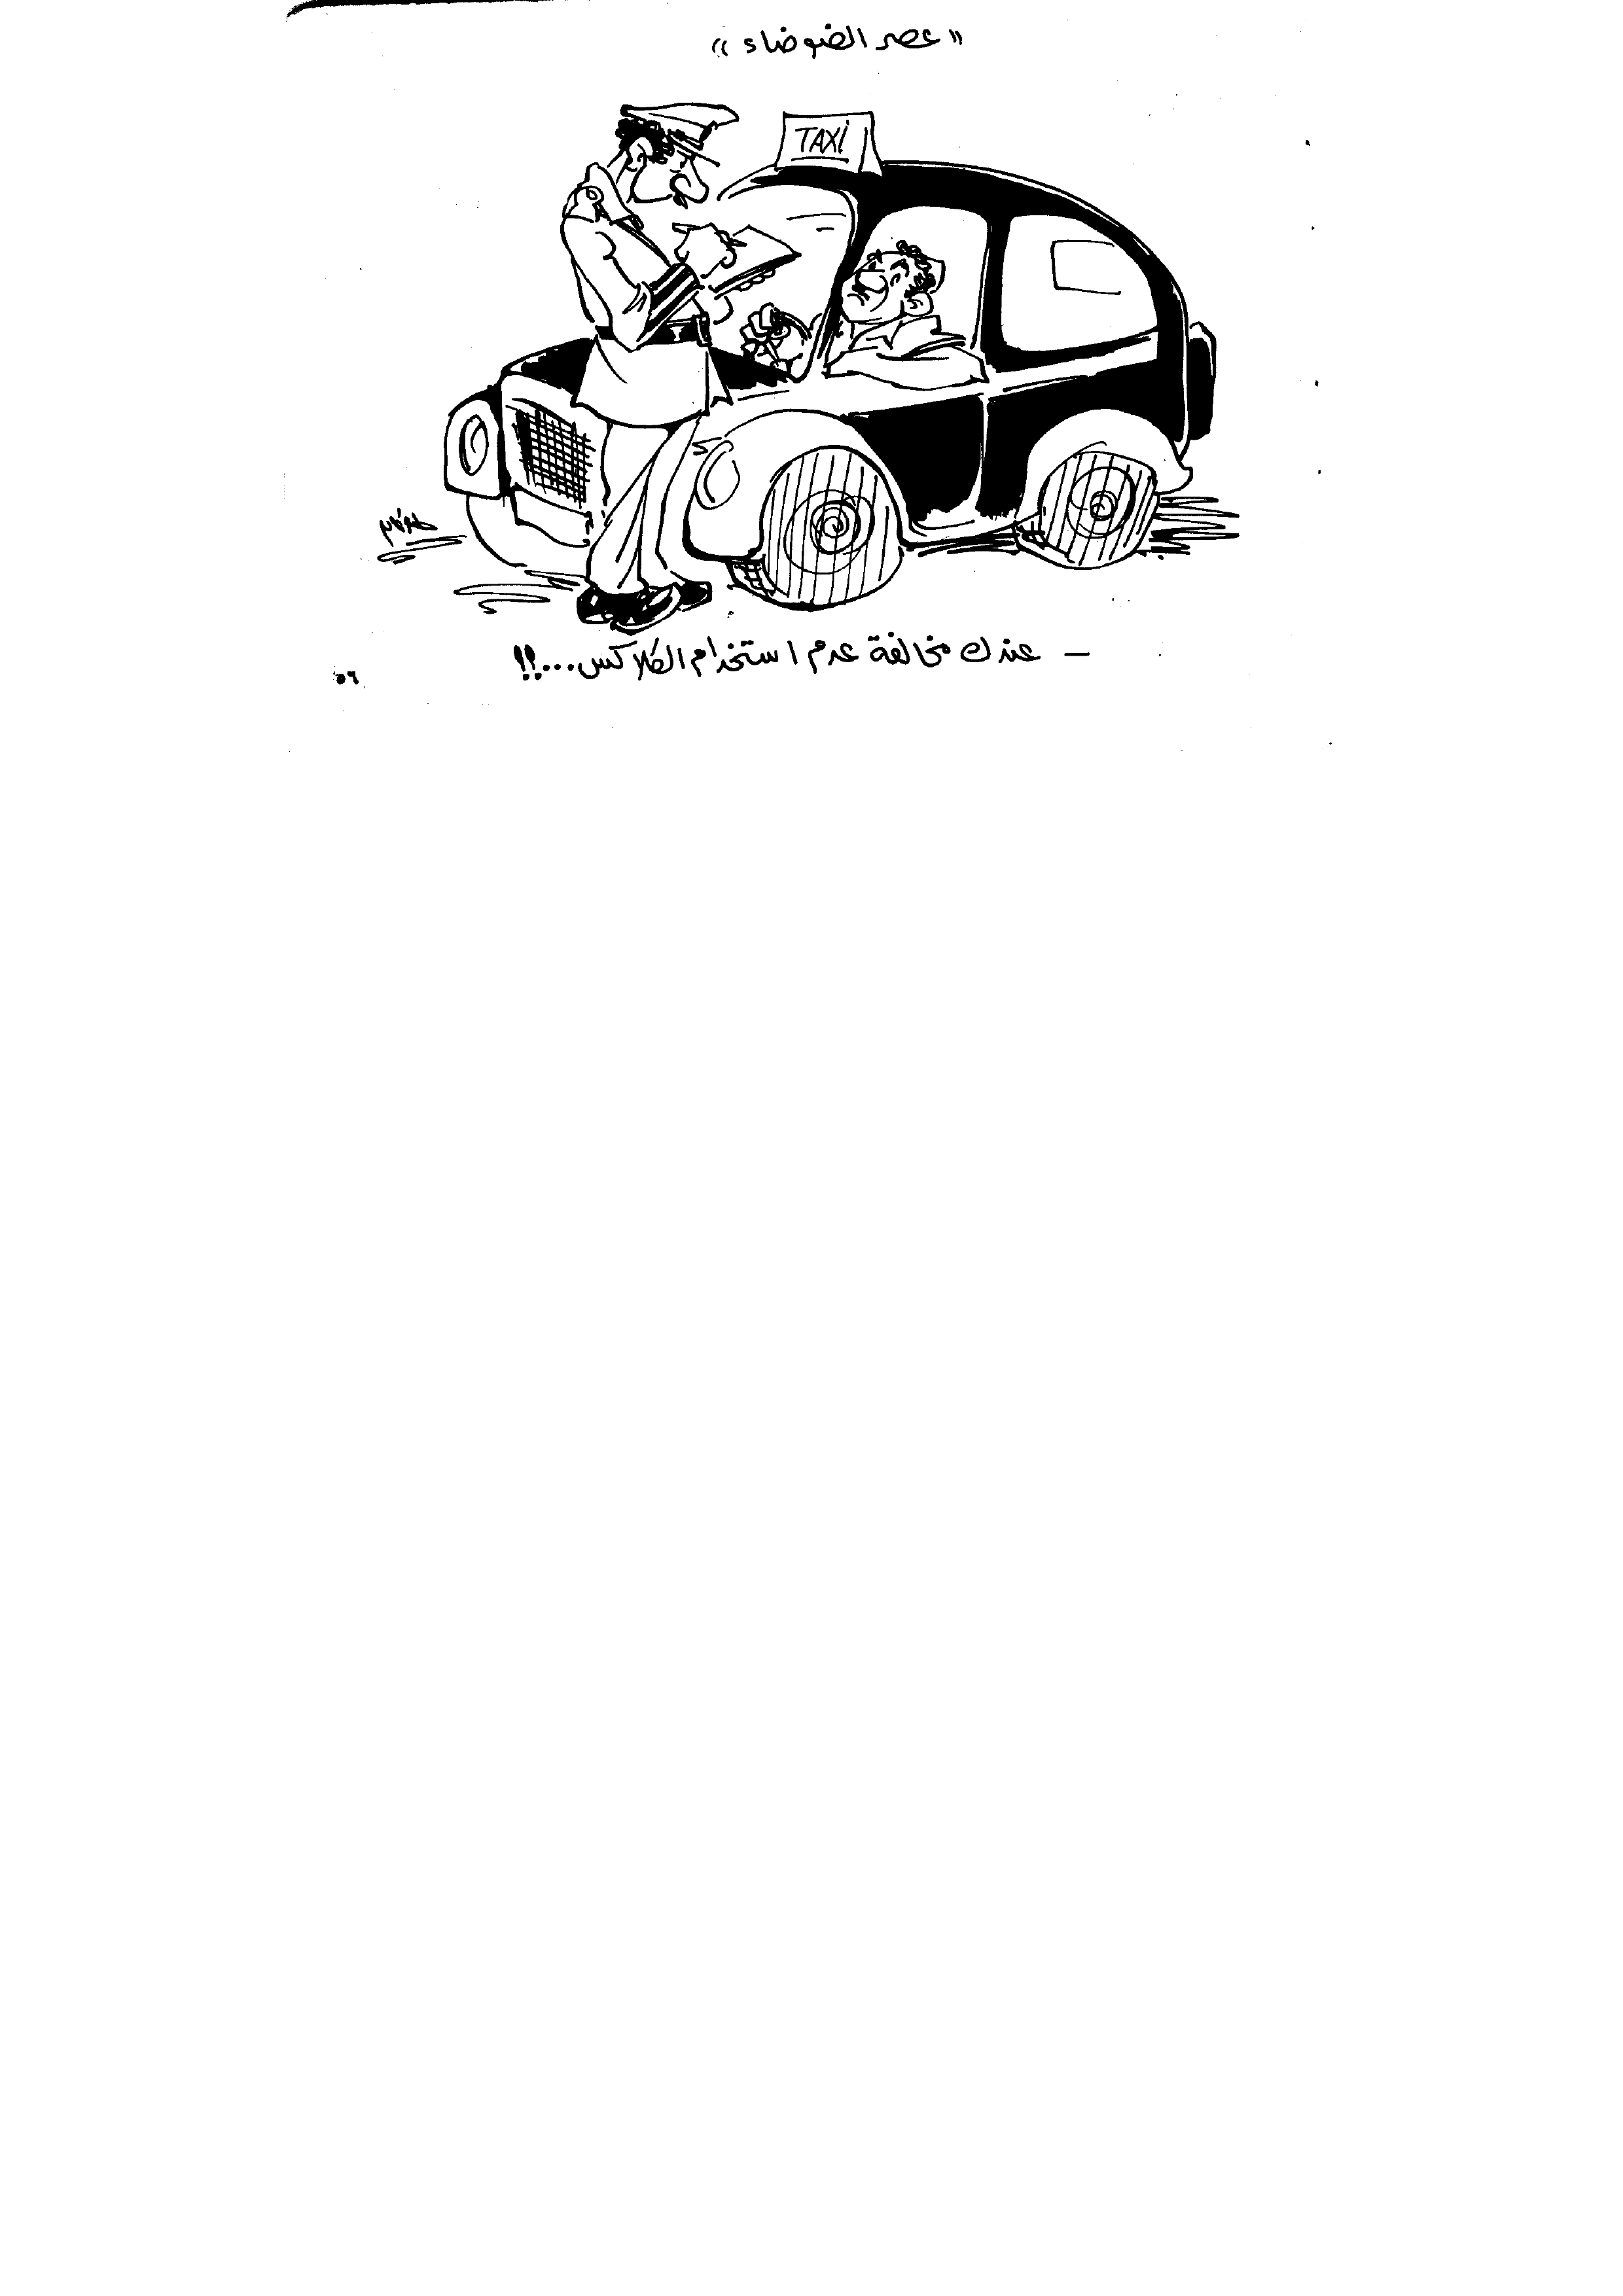 «عصر الضوضاء»
TAXi
- عندك مخالفة عدم استخدام الكلاكس...!!
٥٦